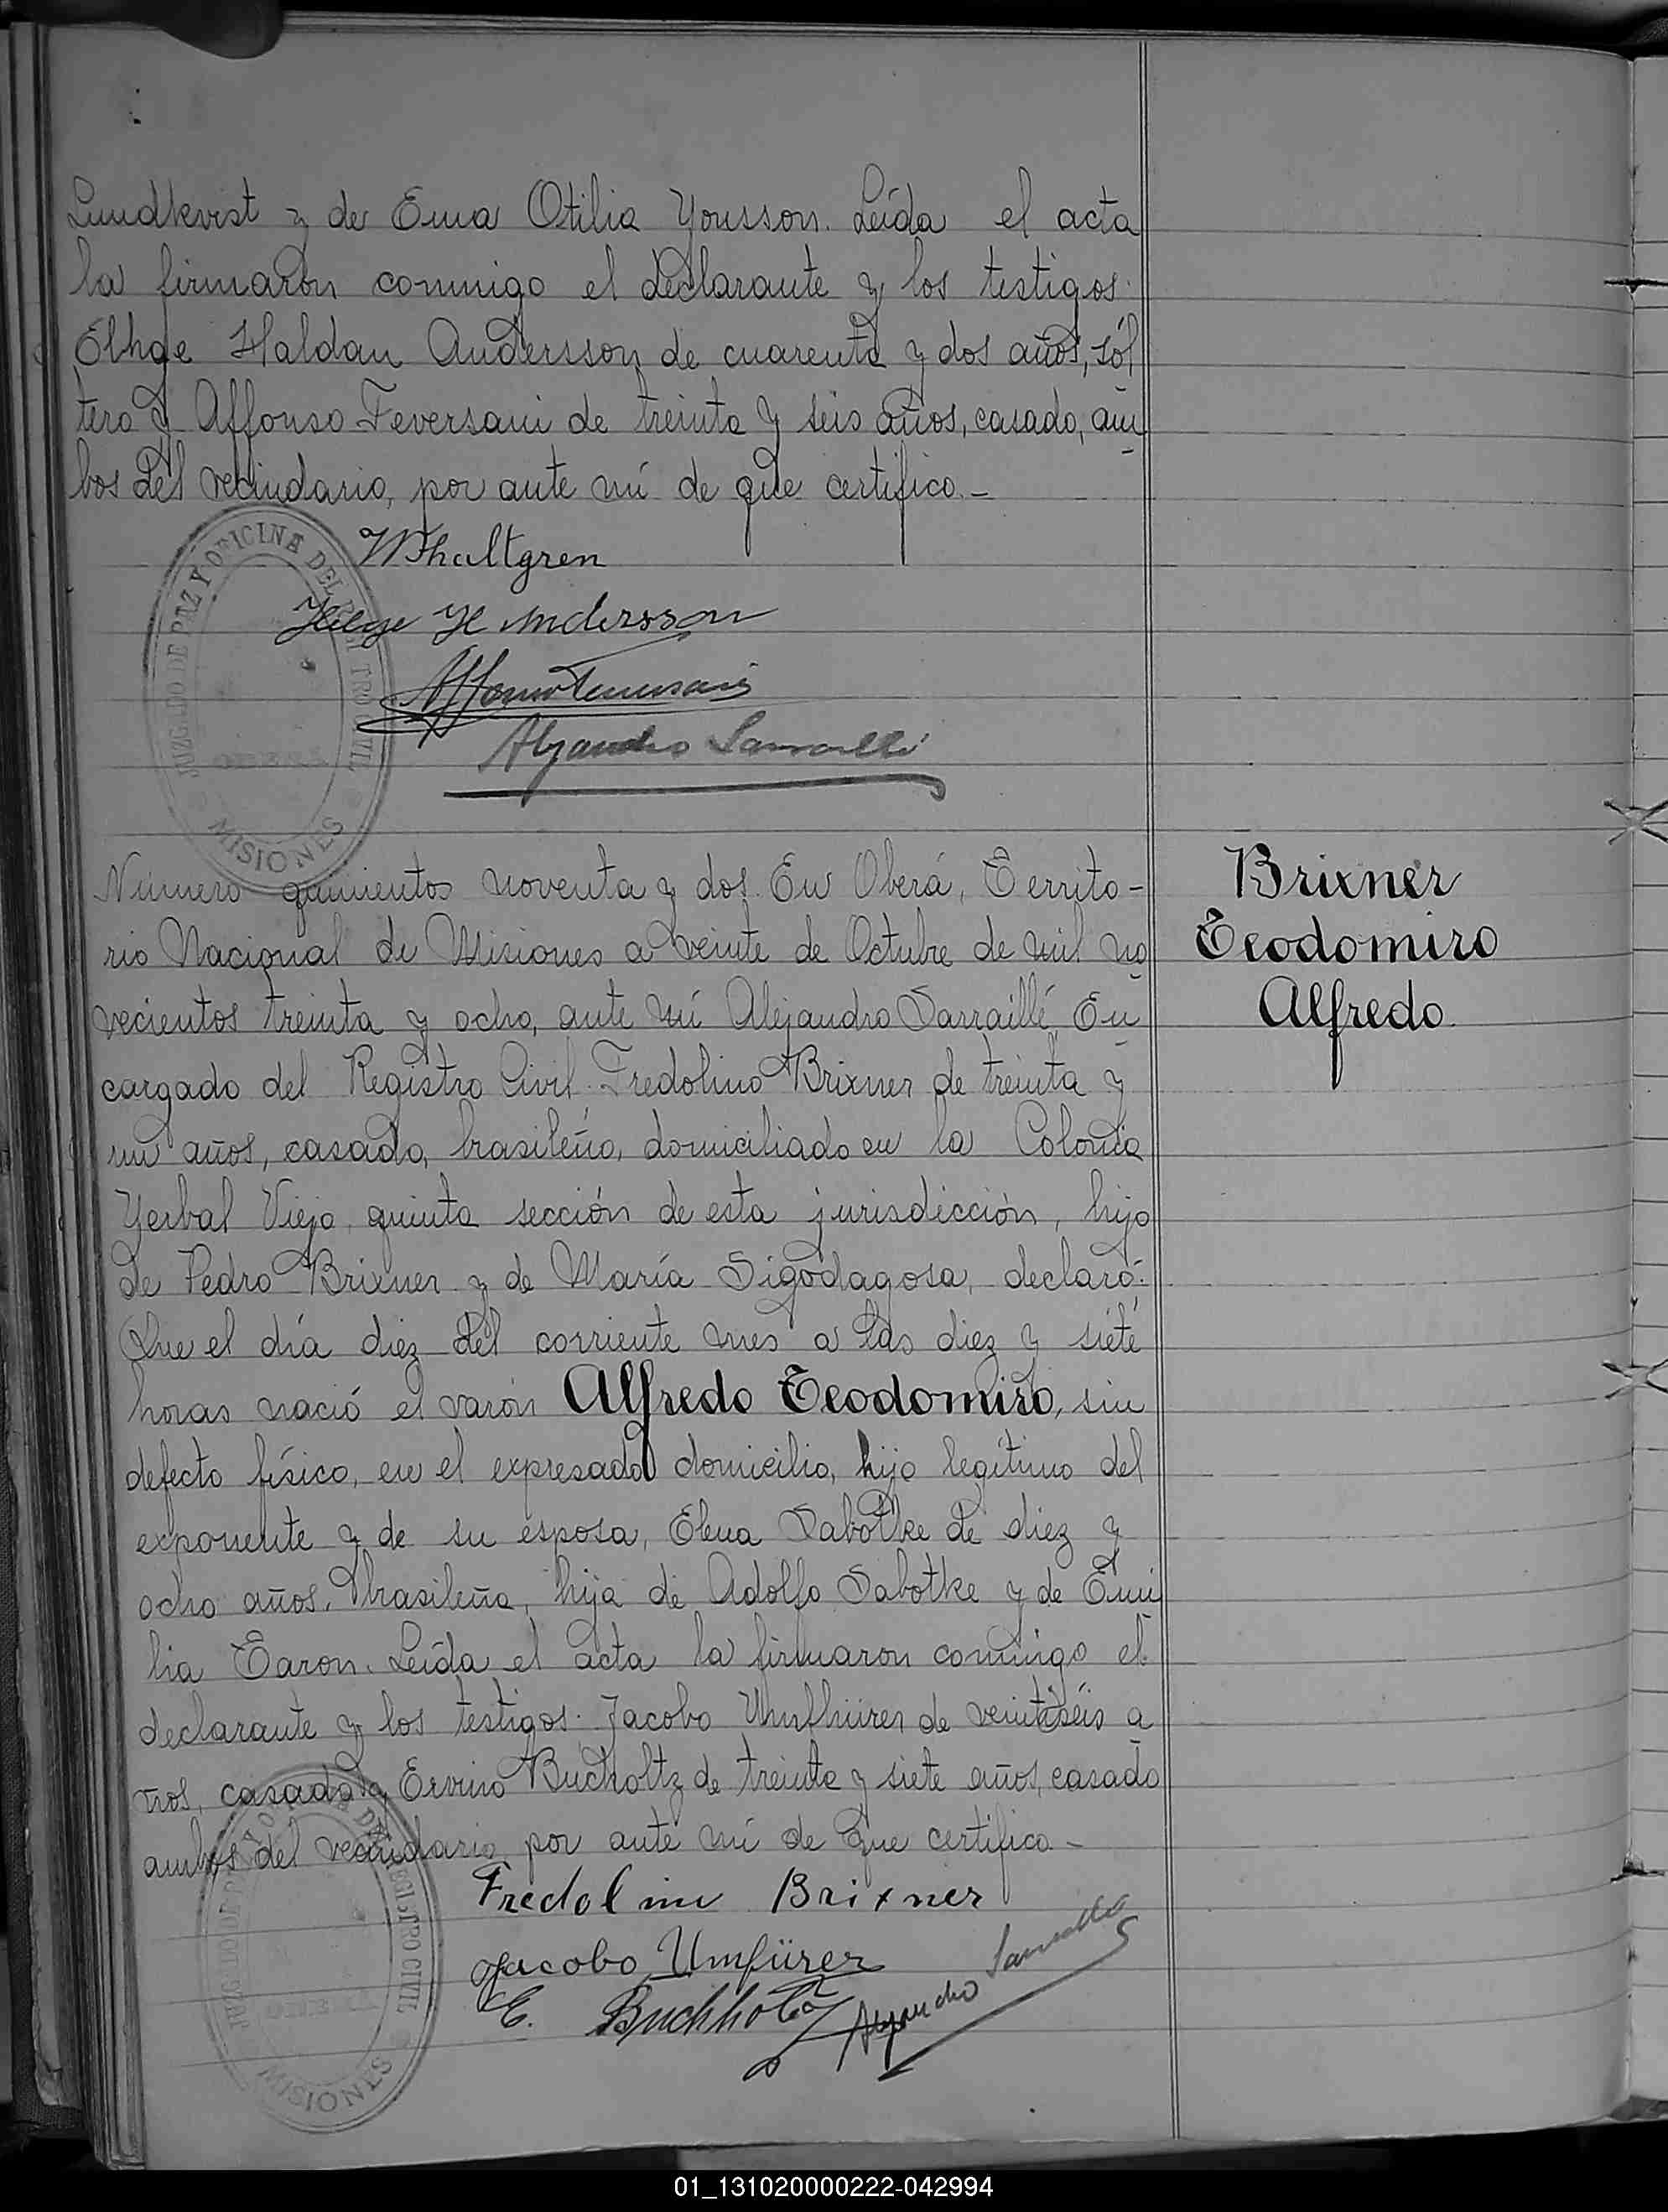 Lundkvist y de Ema Otilia Yonsson. Leída el acta
la firmaron conmigo el declarante y los testigos:
Elhge Haldan Andersson de cuarenta y dos años, sól
tero y Affonso Feversani de treinta y seis años, casado, am
bos del vecindario, por ante mí de que certifico.-
JUZGADO DE PAZ Y OFICINA DEL REGISTRO CIVIL
OBERA
MISIONES
Whultgren
Helge H Andersson
Alejandro Sarraillé
Número quinientos noventa y dos. En Oberá, Territo-
rio Nacional de Misiones a veinte de Octubre de mil no
vecientos treinta y ocho, ante mí Alejandro Sarraillé En
cargado del Registro Civil. Fredolino Brixner de treinta y
un años, casado, brasileño, domiciliado en la Colonia
Yerbal Viejo, quinta sección de esta jurisdicción, hijo
de Pedro Brixner y de María Sigodagosa, declaró:
Que el día diez del corriente mes a las diez y siete
horas nació el varón Alfredo Teodomiro, sin
defecto físico, en el expresado domicilio, hijo legítimo del
exponente y de su esposa, Elena Sabotke de diez y
ocho años, brasileña, hija de Adolfo Sabotke y de Emi
lia Taron. Leída el acta la firmaron conmigo el
declarante y los testigos: Jacobo Umfhürer de veintiséis a
ños, casado y Ervino Bucholtz de treinta y siete años, casado
ambos del vecindario, por ante mí de que certifico.-
Brixner
Teodomiro
Alfredo.
JUZGADO DE PAZ Y OFICINA DEL REGISTRO CIVIL
OBERA
MISIONES
Fredolino Brixner
Jacobo Umfürer
E. Buchholtz
Alejandro Sarraillé
01_131020000222-042994